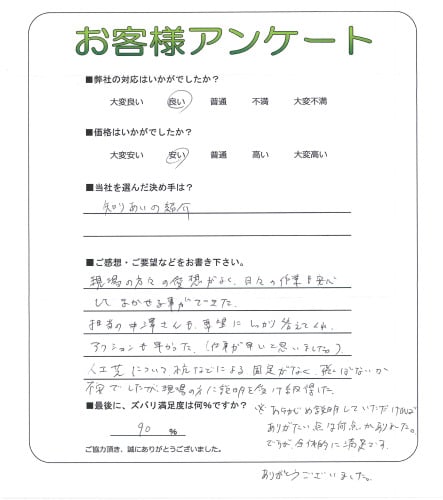 お客様アンケート
■弊社の対応はいかがでしたか?
大変良い 良い 普通 不満 大変不満
■価格はいかがでしたか?
大変安い 安い 普通 高い 大変高い
■当社を選んだ決め手は?
知りあいの紹介
■ご感想・ご要望などをお書き下さい。
現場の方々の愛想がよく、日々の作業を安心
してまかせる事ができた。
担当の中澤さんも要望にしっかり答えてくれ、
アクションも早かった。(仕事が早いと思いました。)
人工芝について、杭などによる固定がなく、飛ばないか
不安でしたが、現場の方に説明を受け納得した。
■最後に、ズバリ満足度は何%ですか?
90 %
※あらかじめ説明していただければ
ありがたい点は何点かありました。
ですが、全体的に満足です。
ご協力頂き、誠にありがとうございました。
ありがとうございました。